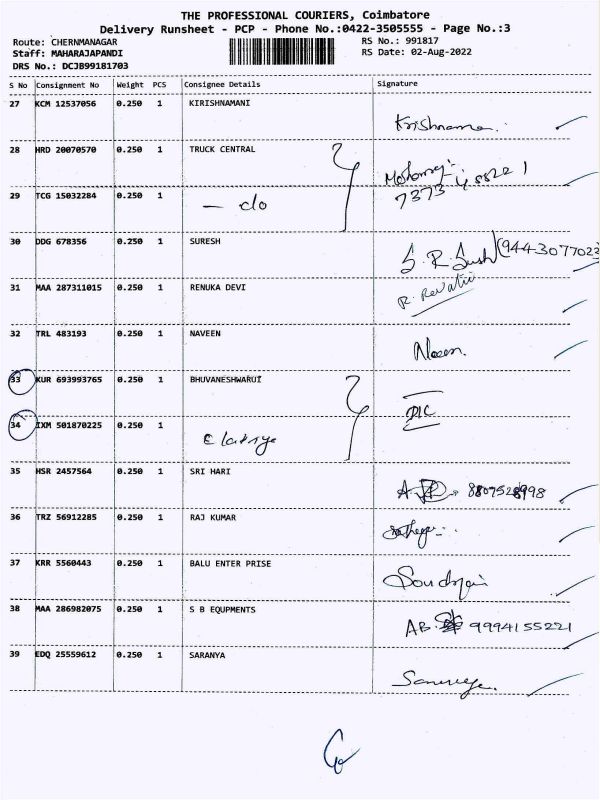 THE PROFESSIONAL COURIERS, Coimbatore
Delivery Runsheet - PCP - Phone No.:0422-3505555 - Page No.:3
Route: CHERNMANAGAR RS No.: 991817
Staff: MAHARAJAPANDI RS Date: 02-Aug-2022
DRS No.: DCJB99181703
S No Consignment No Weight PCS Consignee Details Signature
27 KCM 12537056 0.250 1 KIRISHNAMANI
28 HRD 20070570 0.250 1 TRUCK CENTRAL
29 TCG 15032284 0.250 1 — do
30 DDG 678356 0.250 1 SURESH
31 MAA 287311015 0.250 1 RENUKA DEVI R. Revathi
32 TRL 483193 0.250 1 NAVEEN
33 KUR 693993765 0.250 1 BHUVANESHWARUI
34 IXM 501870225 0.250 1 DIC
35 HSR 2457564 0.250 1 SRI HARI
36 TRZ 56912285 0.250 1 RAJ KUMAR
37 KRR 5560443 0.250 1 BALU ENTER PRISE
38 MAA 286982075 0.250 1 S B EQUPMENTS AB. 9994155221
39 EDQ 25559612 0.250 1 SARANYA